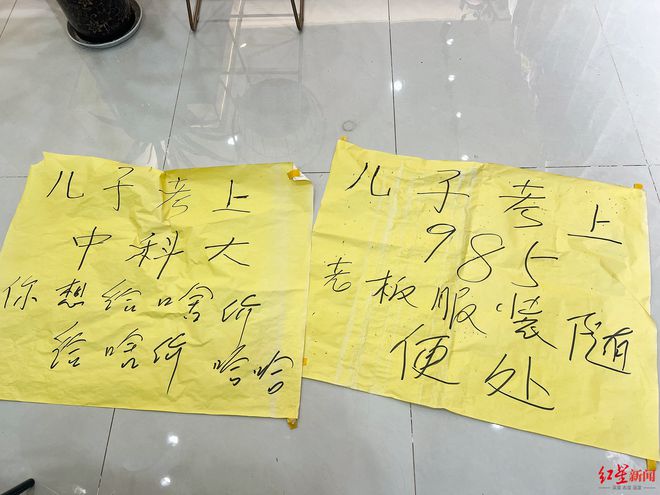 儿子考上
中科大
你想给啥价
给啥价 哈哈
儿子考上
985
老板服装随
便处
红星新闻